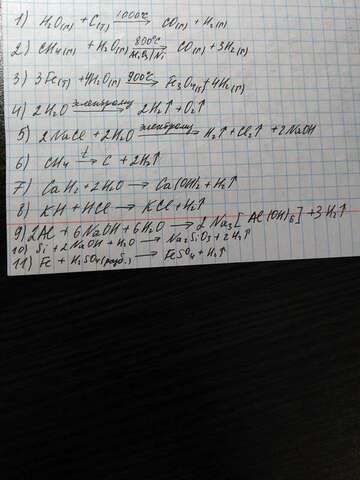 1) H₂O(г) + C(т) 1000°C→ CO(г) + H₂(г)
2) CH₄(г) + H₂O(г) 800°C→ Al₂O₃/Ni CO(г) + 3H₂(г)
3) 3Fe(т) + 4H₂O(г) 900°C→ Fe₃O₄(т) + 4H₂(г)
4) 2H₂O электролиз→ 2H₂↑ + O₂↑
5) 2NaCl + 2H₂O электролиз→ H₂↑ + Cl₂↑ + 2NaOH
6) CH₄ t→ C + 2H₂↑
7) CaH₂ + 2H₂O → Ca(OH)₂ + H₂↑
8) KH + HCl → KCl + H₂↑
9) 2Al + 6NaOH + 6H₂O → 2Na₃[Al(OH)₆] + 3H₂↑
10) Si + 2NaOH + H₂O → Na₂SiO₃ + 2H₂↑
11) Fe + H₂SO₄(разб.) → FeSO₄ + H₂↑